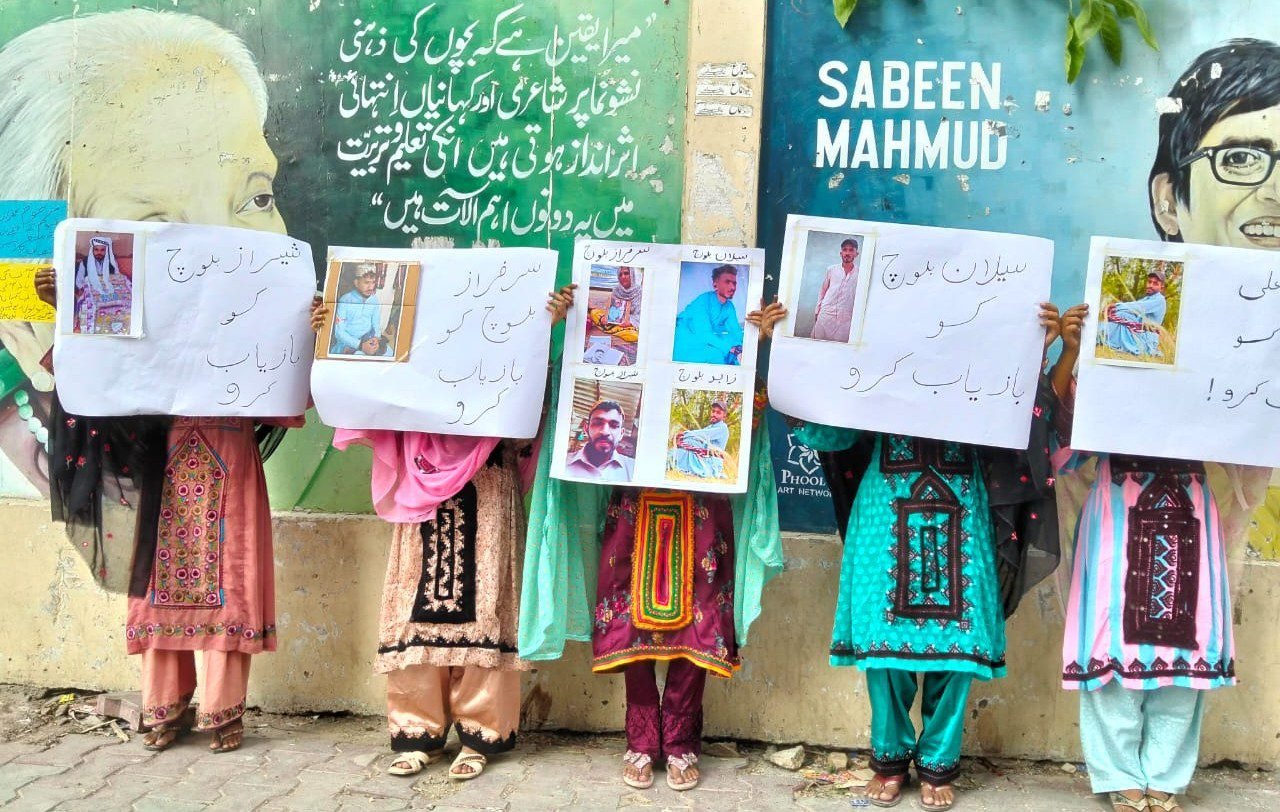 "میرا یقین ہے کہ بچوں کی ذہنی
نشوونما پر شاعری اور کہانیاں انتہائی
اثر انداز ہوتی ہیں انکی تعلیم و تربیت
میں یہ دونوں اہم آلات ہیں"
SABEEN
MAHMUD
شیراز بلوچ
کو
بازیاب
کرو
سرفراز
بلوچ کو
بازیاب
کرو
سرفراز بلوچ
سیلان بلوچ
شیراز بلوچ
بلوچ
سیلان بلوچ
کو
بازیاب کرو
علی
کو
کرو!
PHOOL
ART NETWOR